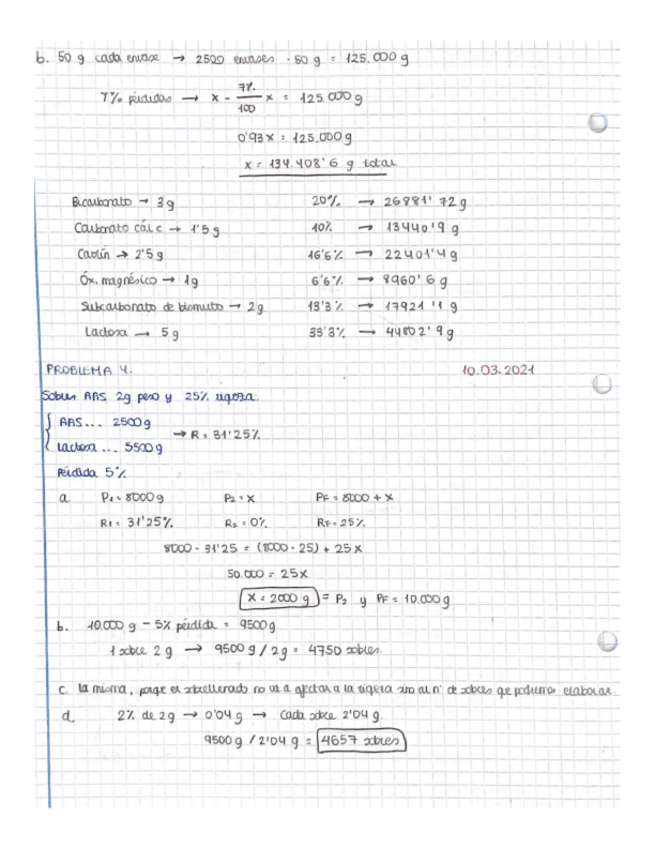 b. 50 g cada envase → 2500 envases · 50 g = 125.000 g
7% pérdidas → x - 7%/100 x = 125.000 g
0'93x = 125.000 g
x = 134.408'6 g total
Bicarbonato → 3g 20% → 26881'72 g
Carbonato cálc → 1'5 g 10% → 13440'9 g
Caolín → 2'5 g 16'6% → 22401'4 g
Óx. magnésico → 1g 6'6% → 8960'6 g
Subcarbonato de bismuto → 2g 13'3% → 17921'1 g
Lactosa → 5 g 33'3% → 44802'9 g
PROBLEMA 4. 10.03.2021
Sobres AAS 2g peso y 25% riqueza.
AAS... 2500 g
→ R = 31'25%
Lactosa ... 5500 g
Pérdida 5%
a P1 = 8000 g P2 = x PF = 8000 + x
R1 = 31'25% R2 = 0% RF = 25%
8000 · 31'25 = (8000 · 25) + 25x
50.000 = 25x
x = 2000 g = P2 y PF = 10.000 g
b. 10.000 g - 5% pérdida = 9500 g
1 sobre 2 g → 9500 g / 2g = 4750 sobres.
c. La misma, porque el sobrellenado no va a afectar a la riqueza sino al nº de sobres que podremos elaborar.
d 2% de 2g → 0'04 g → Cada sobre 2'04 g.
9500 g / 2'04 g = 4657 sobres